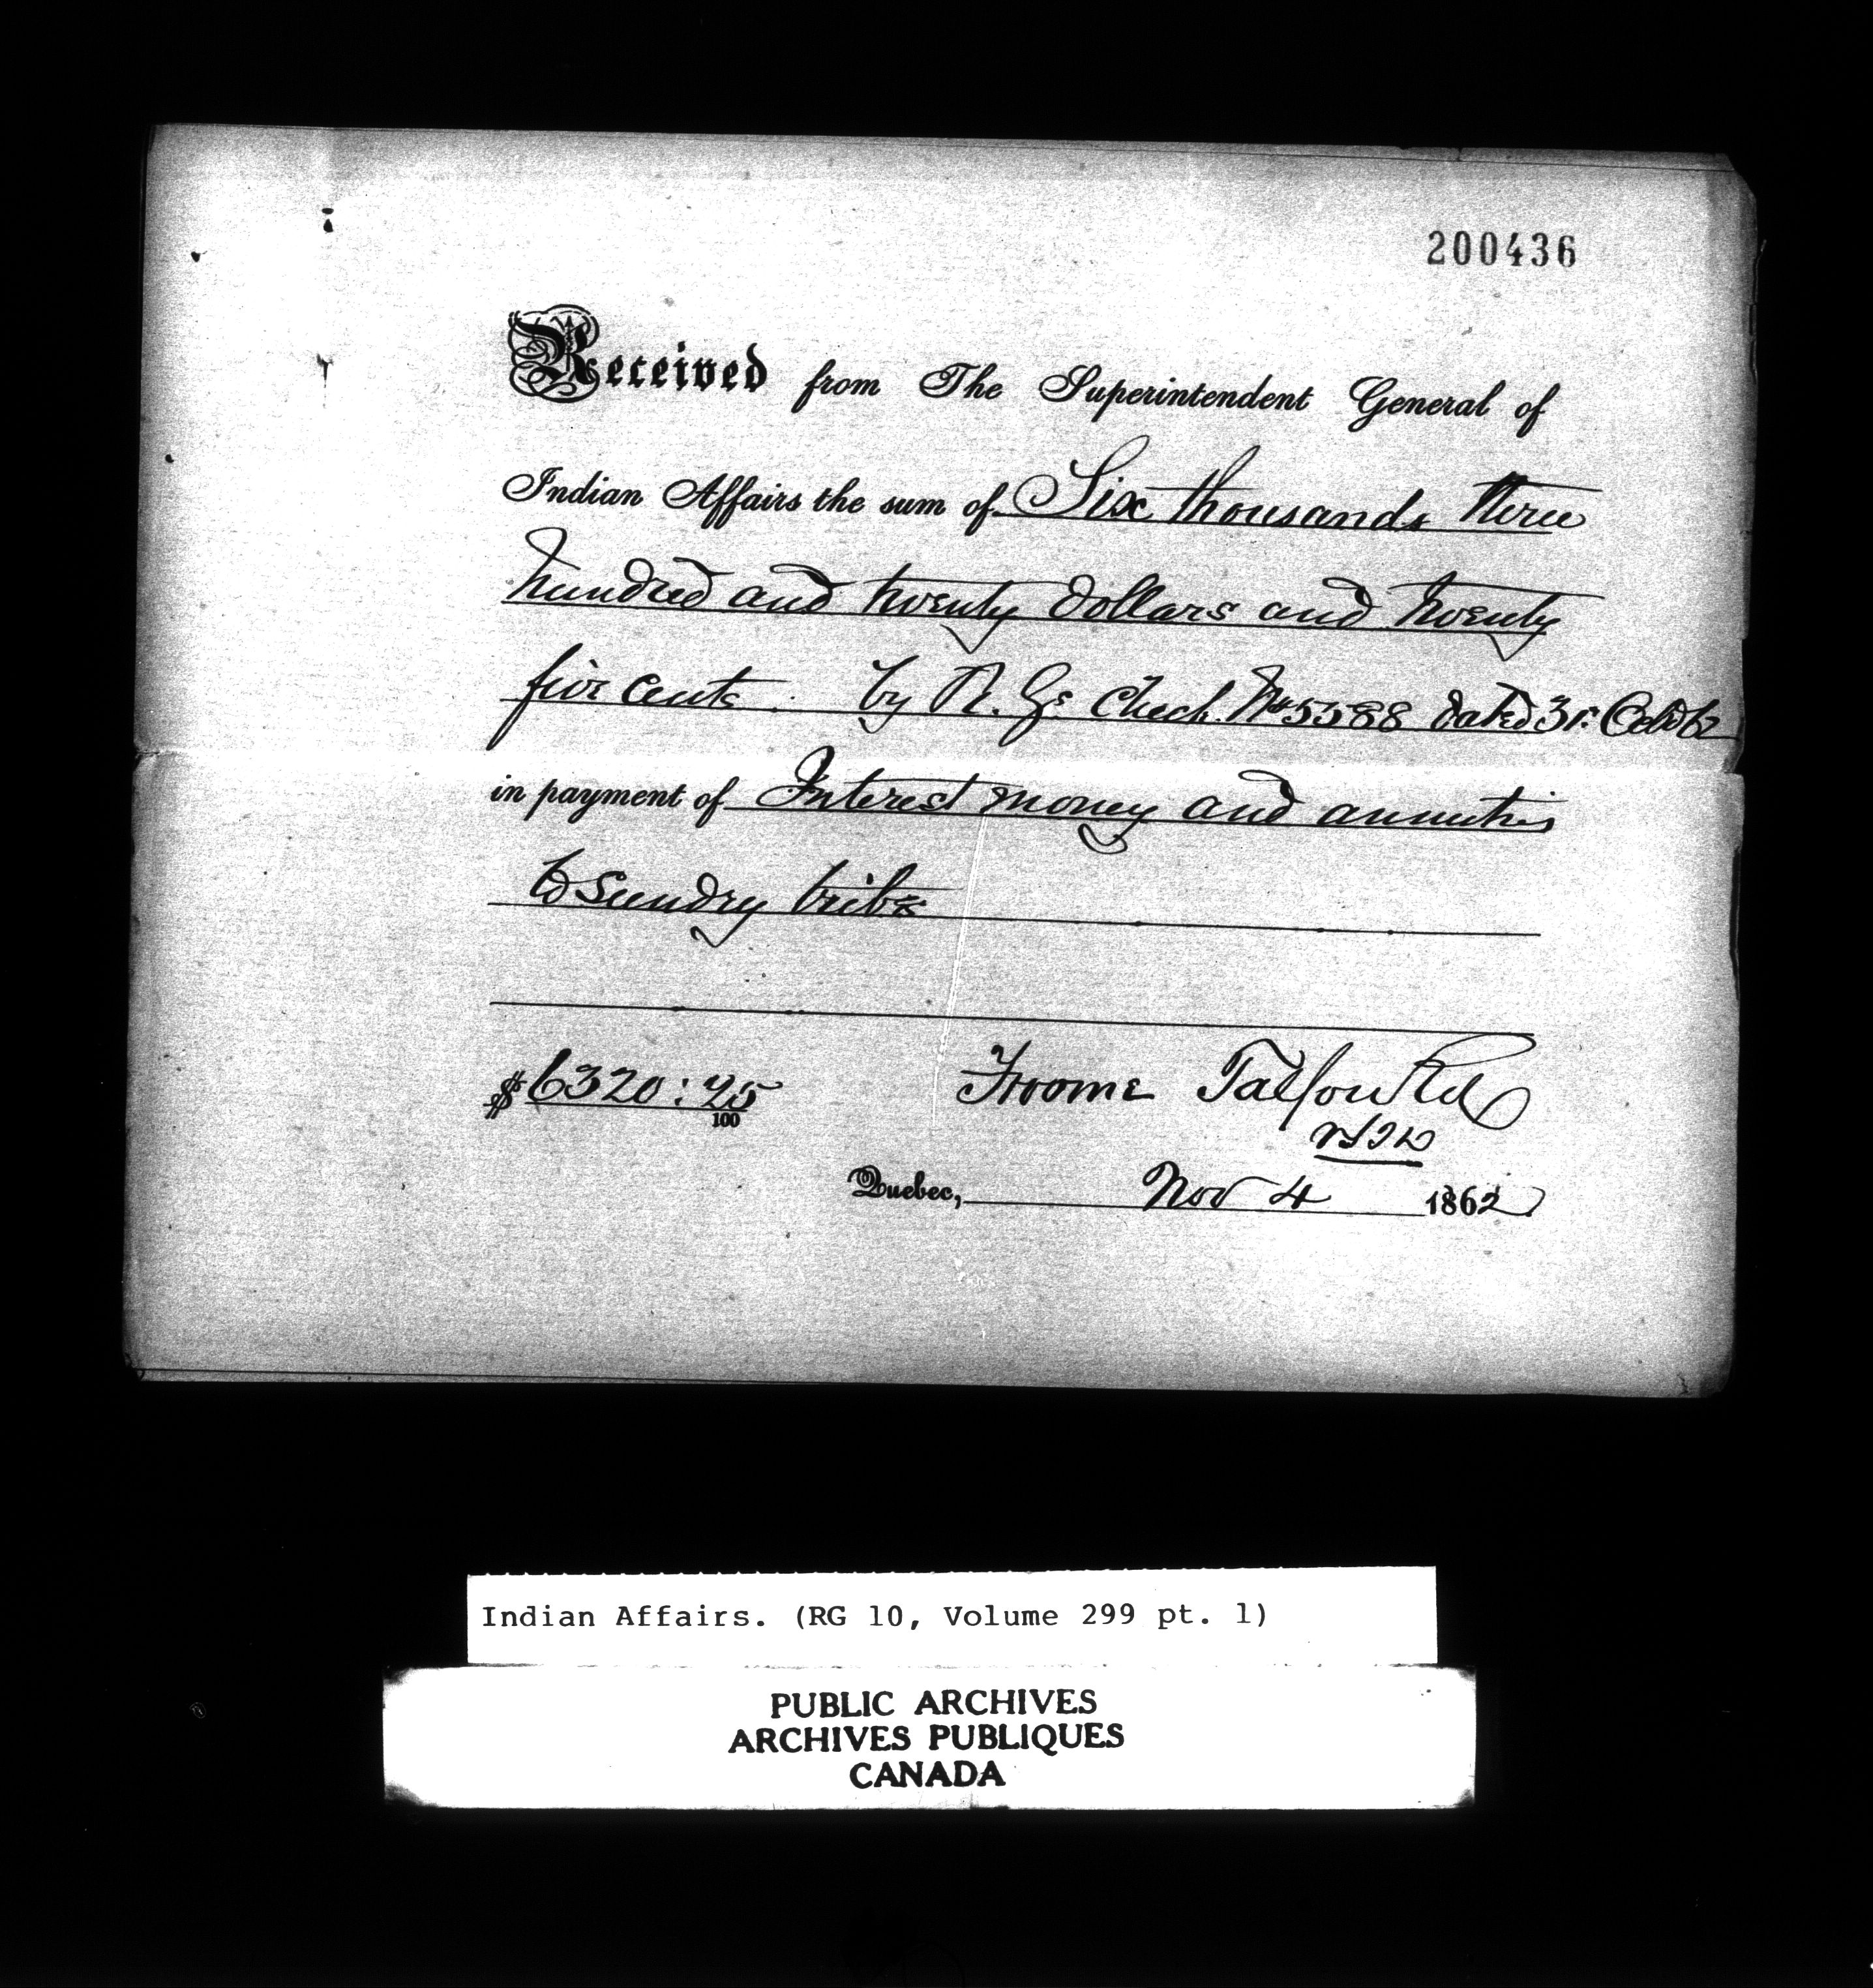 200436
Received from The Superintendent General of
Indian Affairs the sum of Six thousands three
hundred and twenty dollars and twenty
five cents. by R. Gs Check No 5588 dated 31: Oct 62
in payment of Interest money and annuities
to sundry tribes
$6320:25
100
Froome Talfourd
Quebec, Nov 4 1862
Indian Affairs. (RG 10, Volume 299 pt. 1)
PUBLIC ARCHIVES
ARCHIVES PUBLIQUES
CANADA